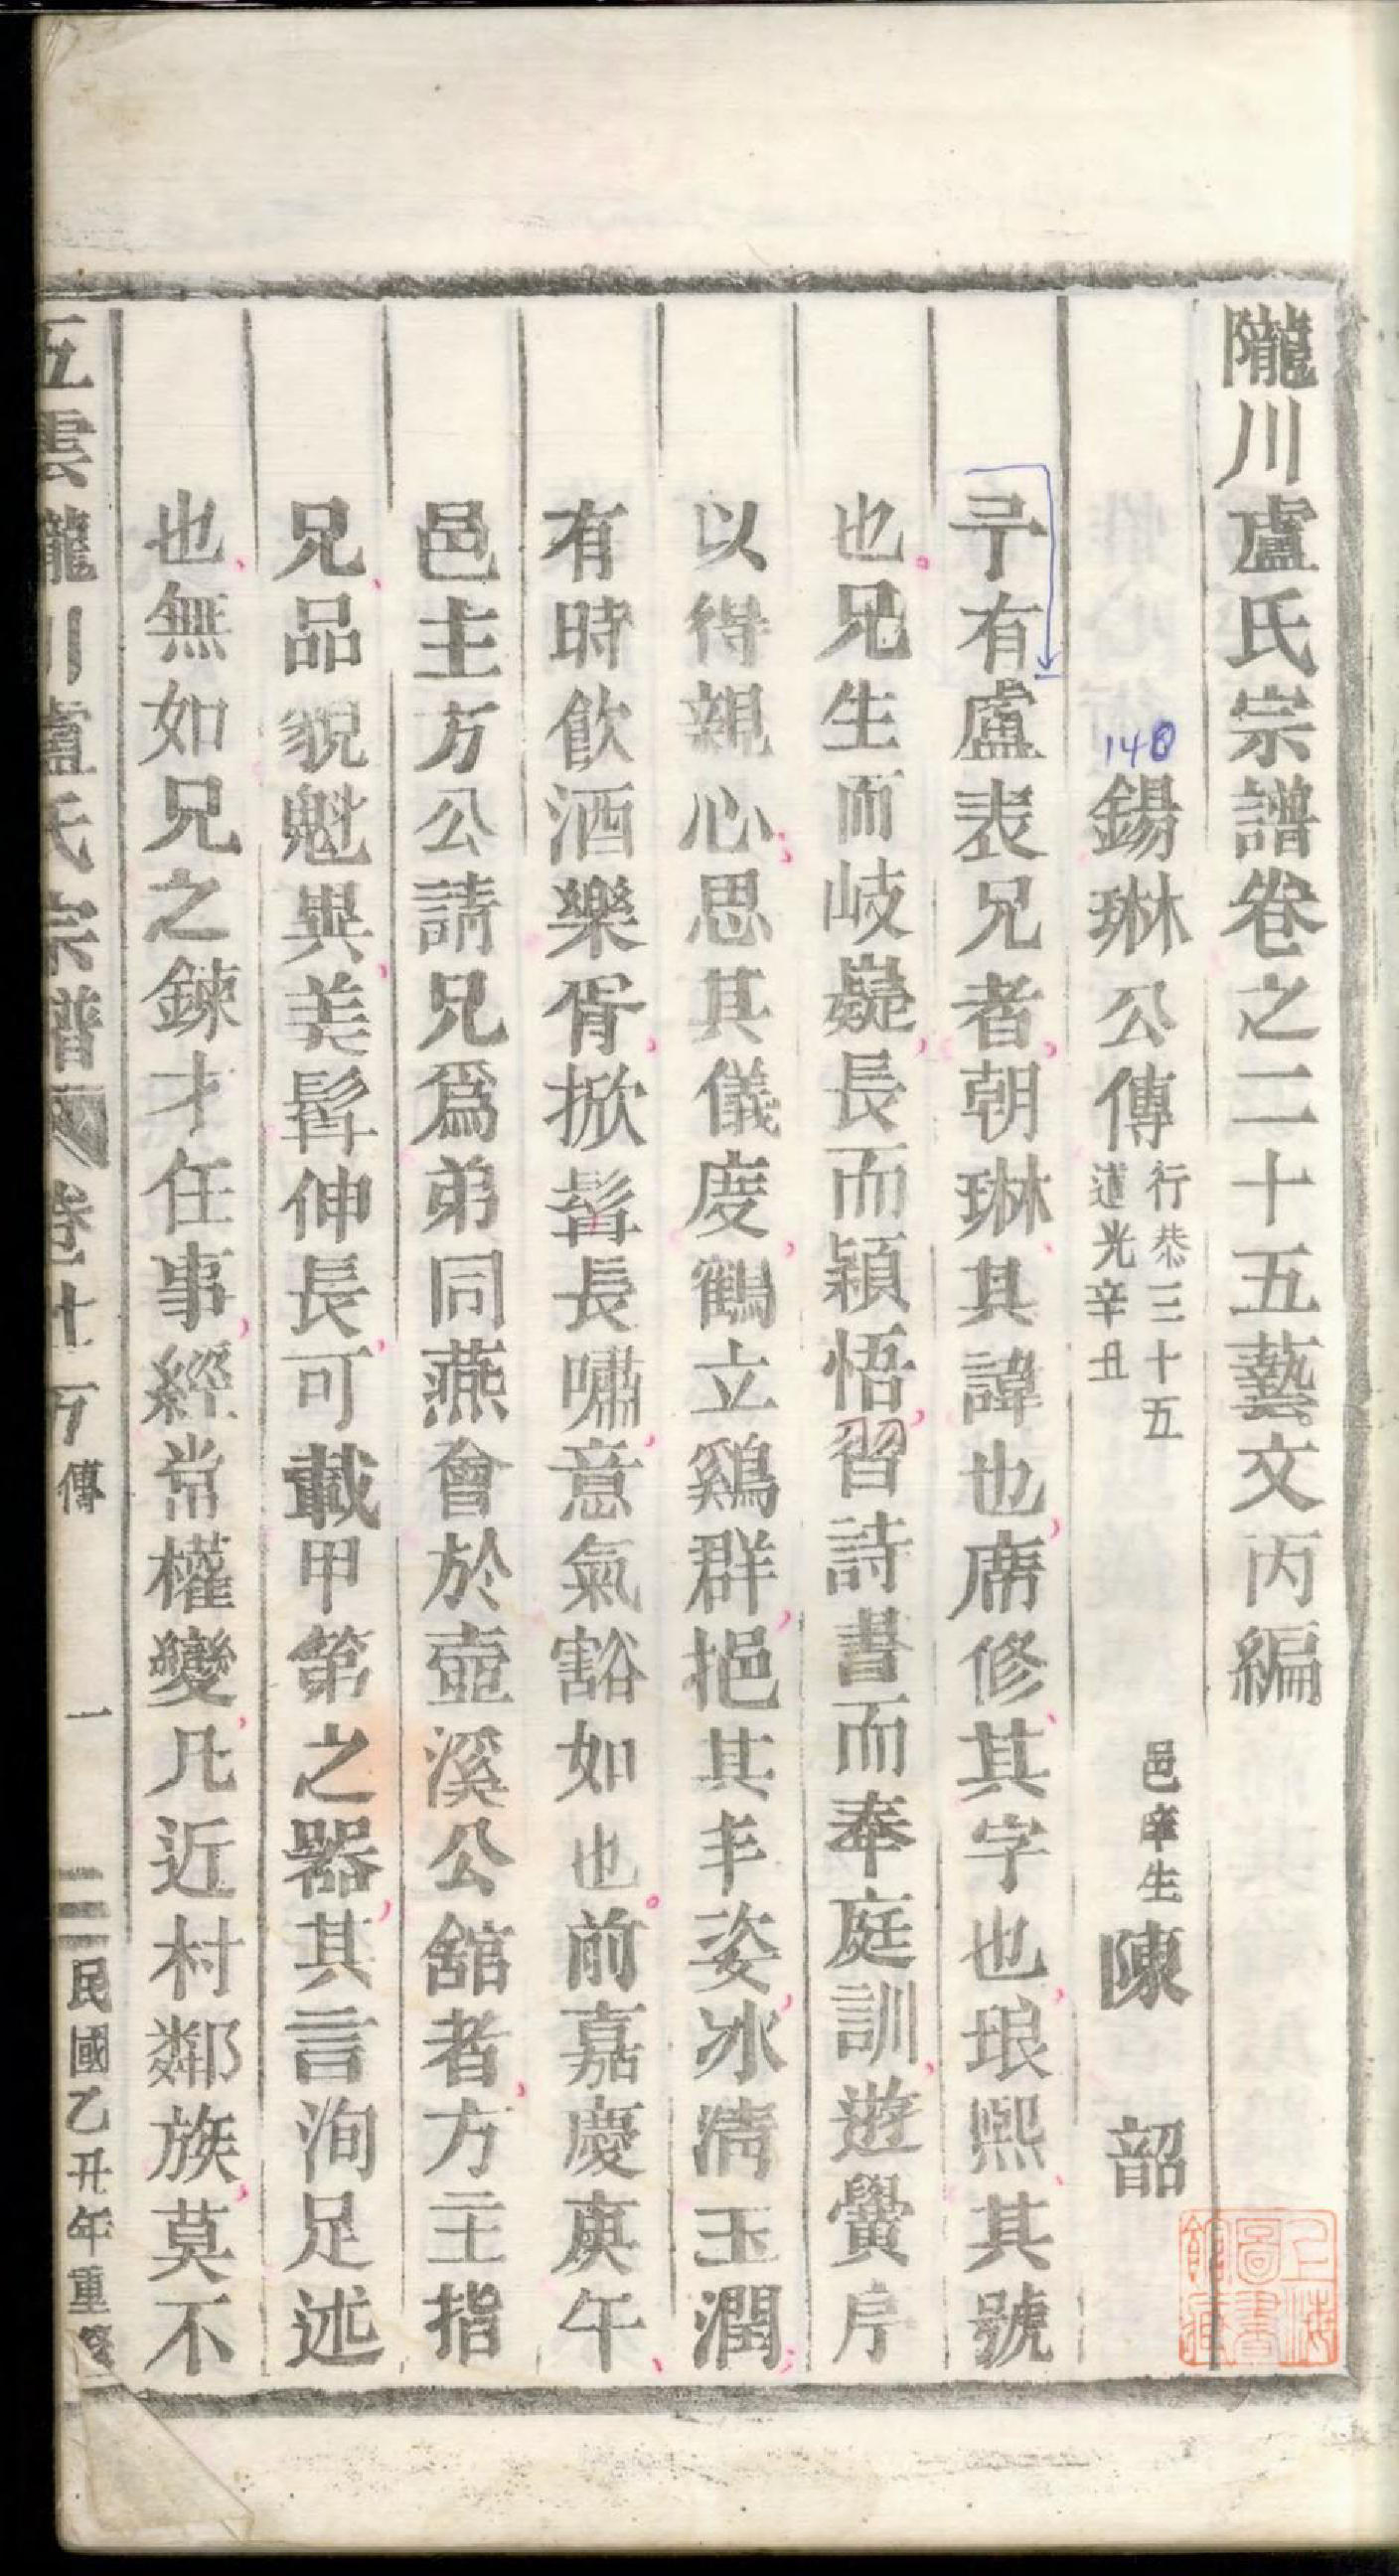 隴川盧氏宗譜卷之二十五藝文丙編
140
鍚琳公傳
行恭三十五
道光辛丑
邑庠生陳韶
予有盧表兄者朝琳其諱也席修其字也琅熙其號
也兄生而岐嶷長而穎悟習詩書而奉庭訓遊黌序
以得親心思其儀度鶴立鷄群挹其丰姿冰清玉潤
有時飲酒樂胥掀髯長嘯意氣豁如也前嘉慶庚午
邑主方公請兄爲弟同燕會於壺溪公舘者方主指
兄品貌魁異美髯伸長可載甲第之器其言洵足述
也無如兄之鍊才任事經常權變凡近村鄰族莫不
五雲隴川盧氏宗譜
傳
一
民國乙丑年重修
上海圖書館藏